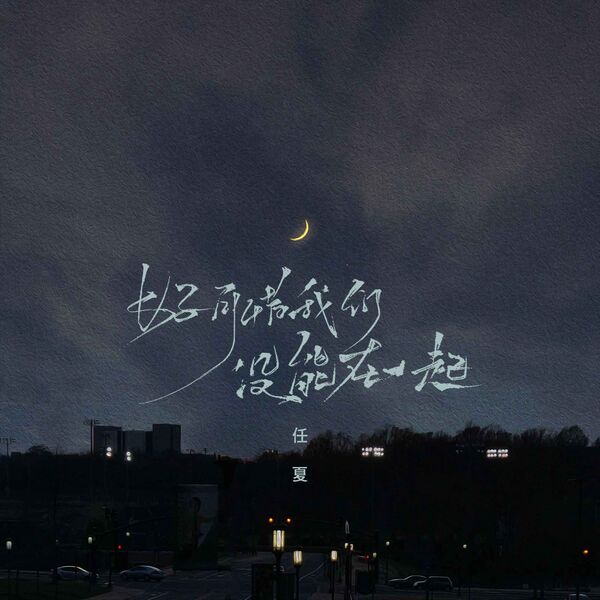 好可惜我们
没能在一起
任
夏